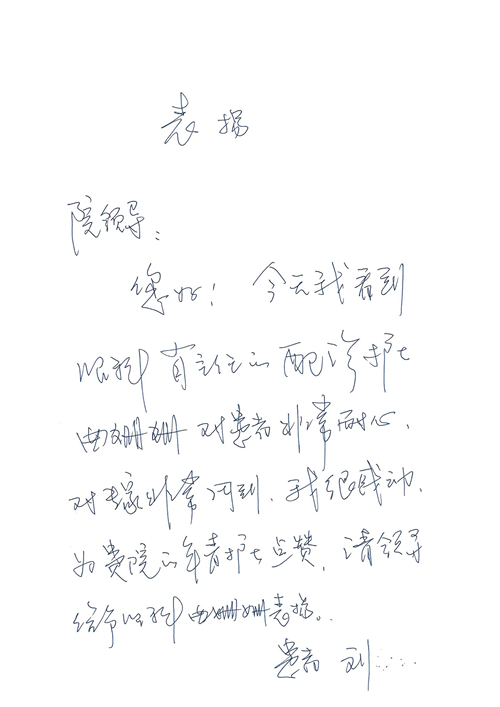 表扬
院领导：
您好！今天我看到
眼科有主任的配诊护士
曲姗姗对患者非常耐心、
对专家非常周到、我很感动、
为贵院的年青护士点赞、请领导
给予眼科曲姗姗表扬。
患者 刘